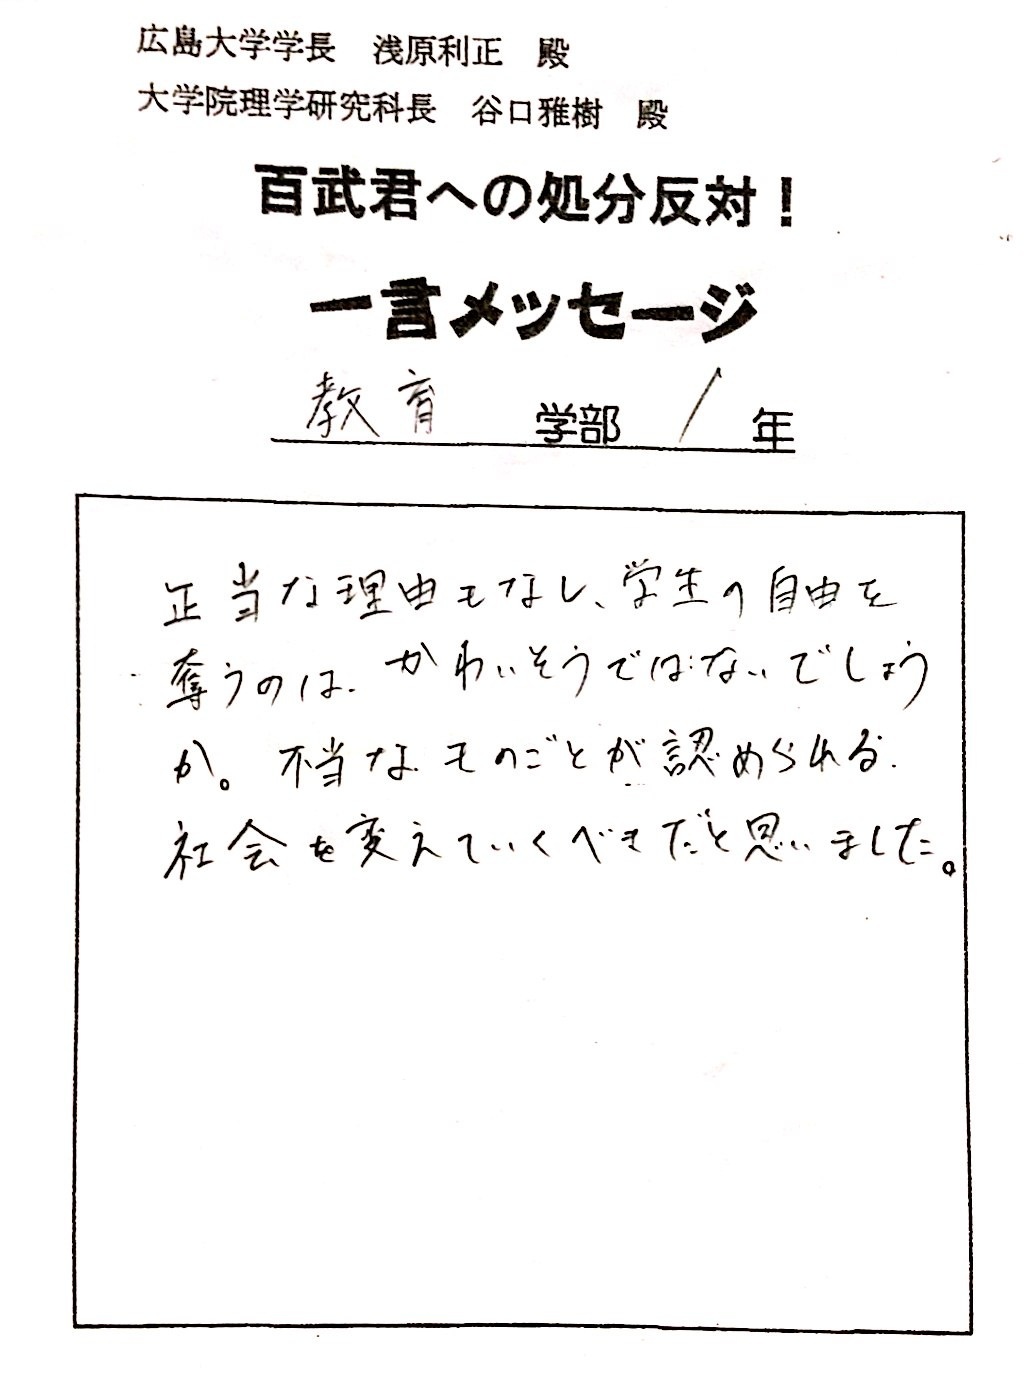 広島大学学長　浅原利正　殿
大学院理学研究科長　谷口雅樹　殿
百武君への処分反対！
一言メッセージ
教育 学部 1 年
正当な理由もなし、学生の自由を
奪うのは、かわいそうではないでしょう
か。不当なものごとが認められる
社会を変えていくべきだと思いました。